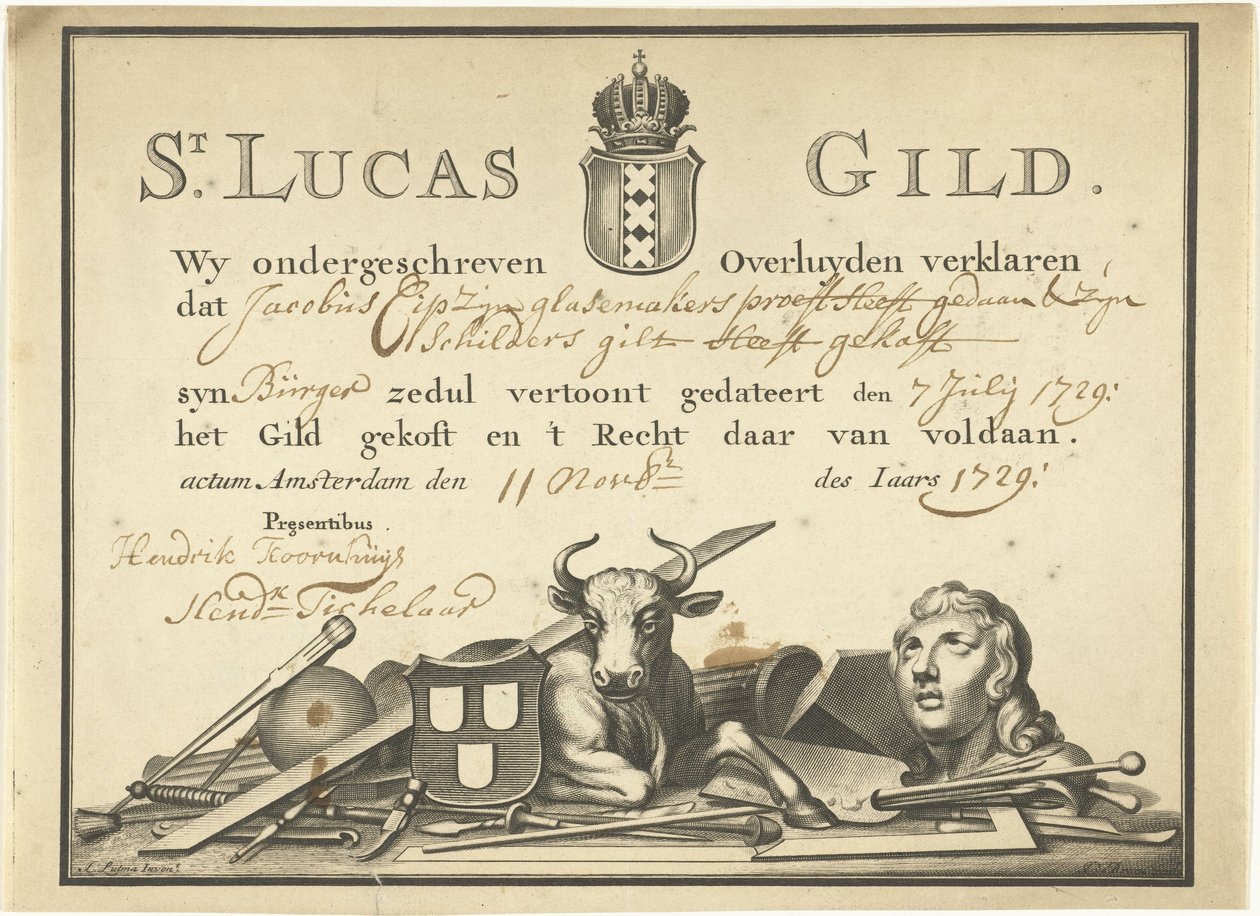 St. LUCAS GILD.
Wy ondergeschreven Overluyden verklaren
dat Jacobus Eip zyn glasemakers proeft Heeft gedaan & zyn
Schilders gilt Heeft gekoft
syn Bürger zedul vertoont gedateert den 7 Julij 1729:
het Gild gekoft en 't Recht daar van voldaan.
actum Amsterdam den 11 Novbr des Iaars 1729:
Presentibus.
Hendrik Koornhuijs
Hendk Tichelaar
I. Lutma Inven.